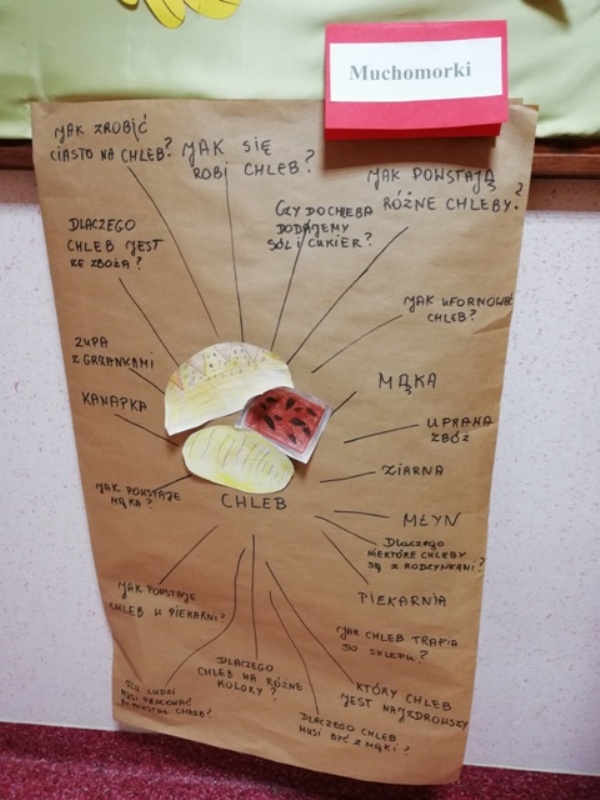 Muchomorki
JAK ZROBIĆ
CIASTO NA CHLEB?
JAK SIĘ
ROBI CHLEB?
JAK POWSTAJĄ
RÓŻNE CHLEBY?
CZY DO CHLEBA
DODAJEMY
SÓL I CUKIER?
DLACZEGO
CHLEB JEST
ZE ZBOŻA?
JAK UFORMOWAĆ
CHLEB?
ZUPA
Z GRZANKAMI
MĄKA
KANAPKA
UPRAWA
ZBÓŻ
ZIARNA
JAK POWSTAJE
MĄKA?
CHLEB
MŁYN
Dlaczego
NIEKTÓRE CHLEBY
SĄ Z RODZYNKAMI?
JAK POWSTAJE
CHLEB W PIEKARNI?
PIEKARNIA
JAK CHLEB TRAFIA
DO SKLEPU?
DLACZEGO
CHLEB MA RÓŻNE
KOLORY?
KTÓRY CHLEB
JEST NAJZDROWSZY
ILU LUDZI
MUSI PRACOWAĆ
BY POWSTAŁ CHLEB?
DLACZEGO CHLEB
MUSI BYĆ Z MĄKI?